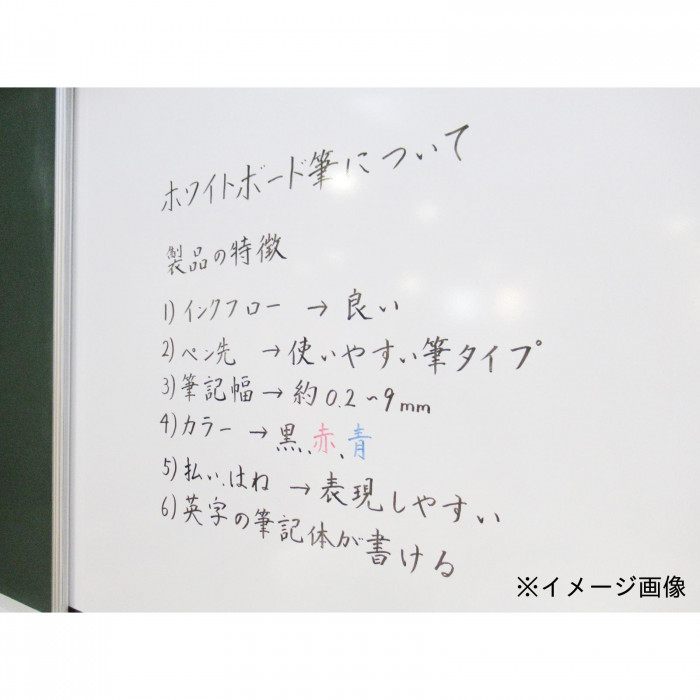 ホワイトボード筆について
製品の特徴
1)インクフロー → 良い
2)ペン先 → 使いやすい筆タイプ
3)筆記幅 → 約0.2~9mm
4)カラー → 黒、赤、青
5)払い、はね → 表現しやすい
6)英字の筆記体が書ける
※イメージ画像